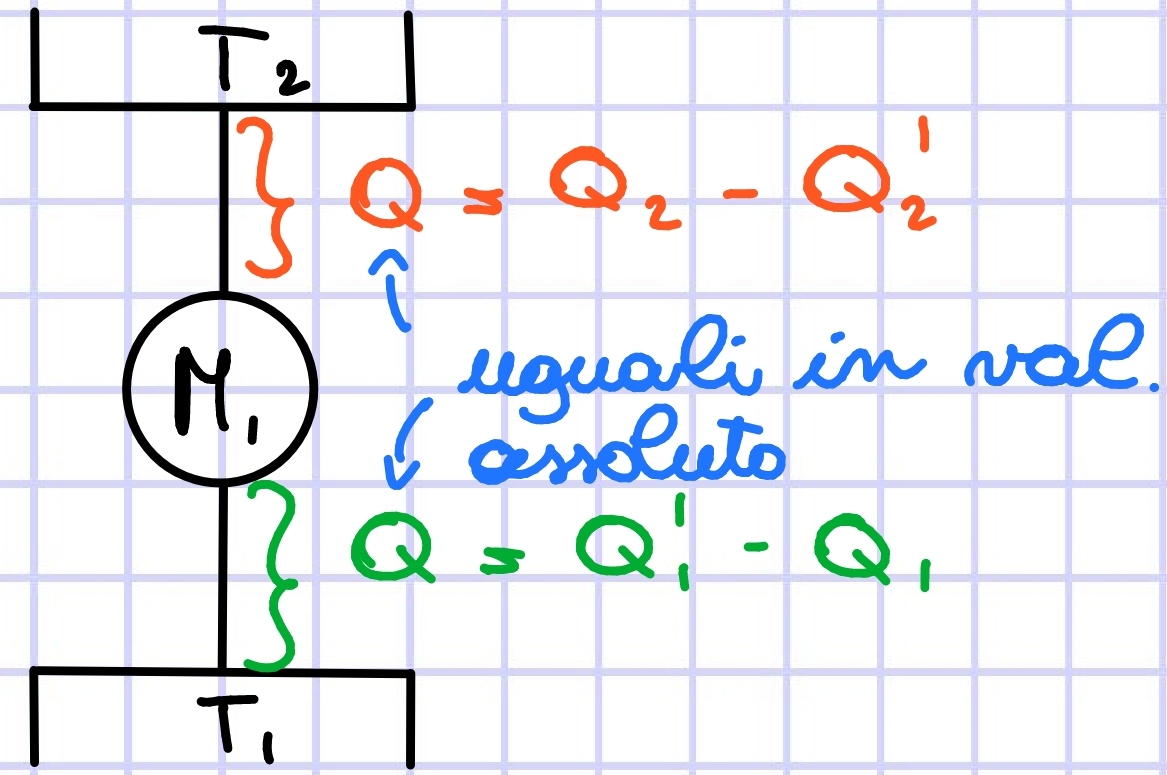 T₂
Q = Q₂ - Q₂'
uguali in val.
M₁
assoluto
Q = Q₁' - Q₁
T₁